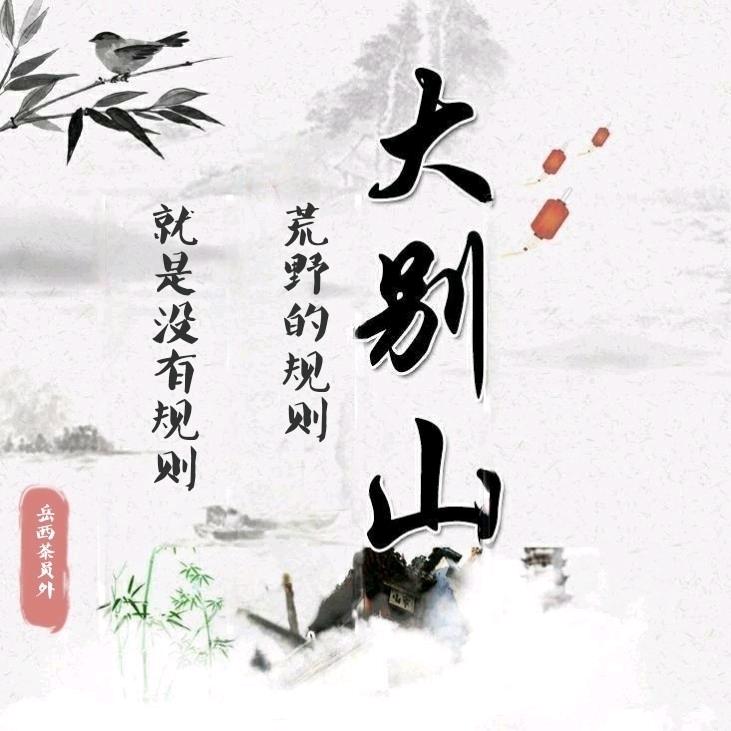 大别山
荒野的规则
就是没有规则
岳西茶员外